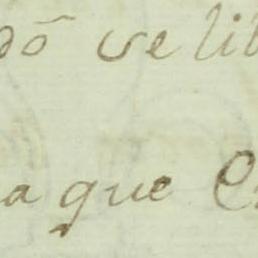 dõ se lib
a que C